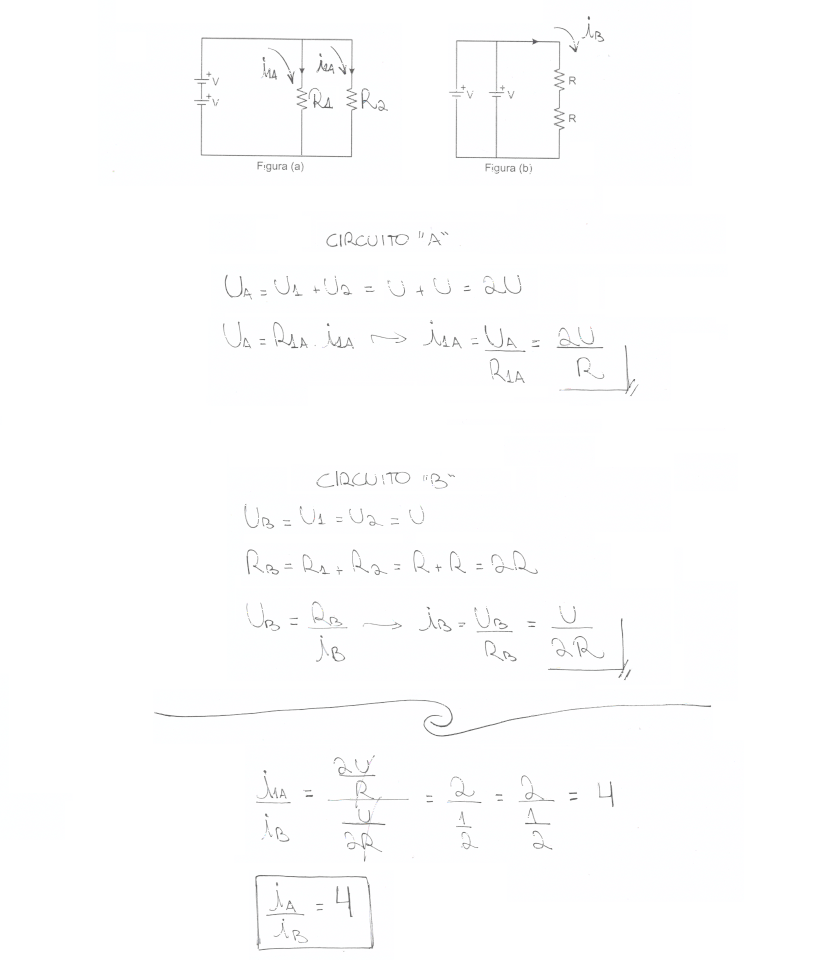 i1A i1A iB
+ V + V R1 R2 + V + V R R
Figura (a) Figura (b)
CIRCUITO "A"
UA = U1 + U2 = U + U = 2U
UA = R1A . i1A → i1A = UA/R1A = 2U/R
CIRCUITO "B"
UB = U1 = U2 = U
RB = R1 + R2 = R + R = 2R
UB = RB/iB → iB = UB/RB = U/2R
i1A/iB = (2U/R)/(U/2R) = 2/(1/2) = 2/(1/2) = 4
iA/iB = 4